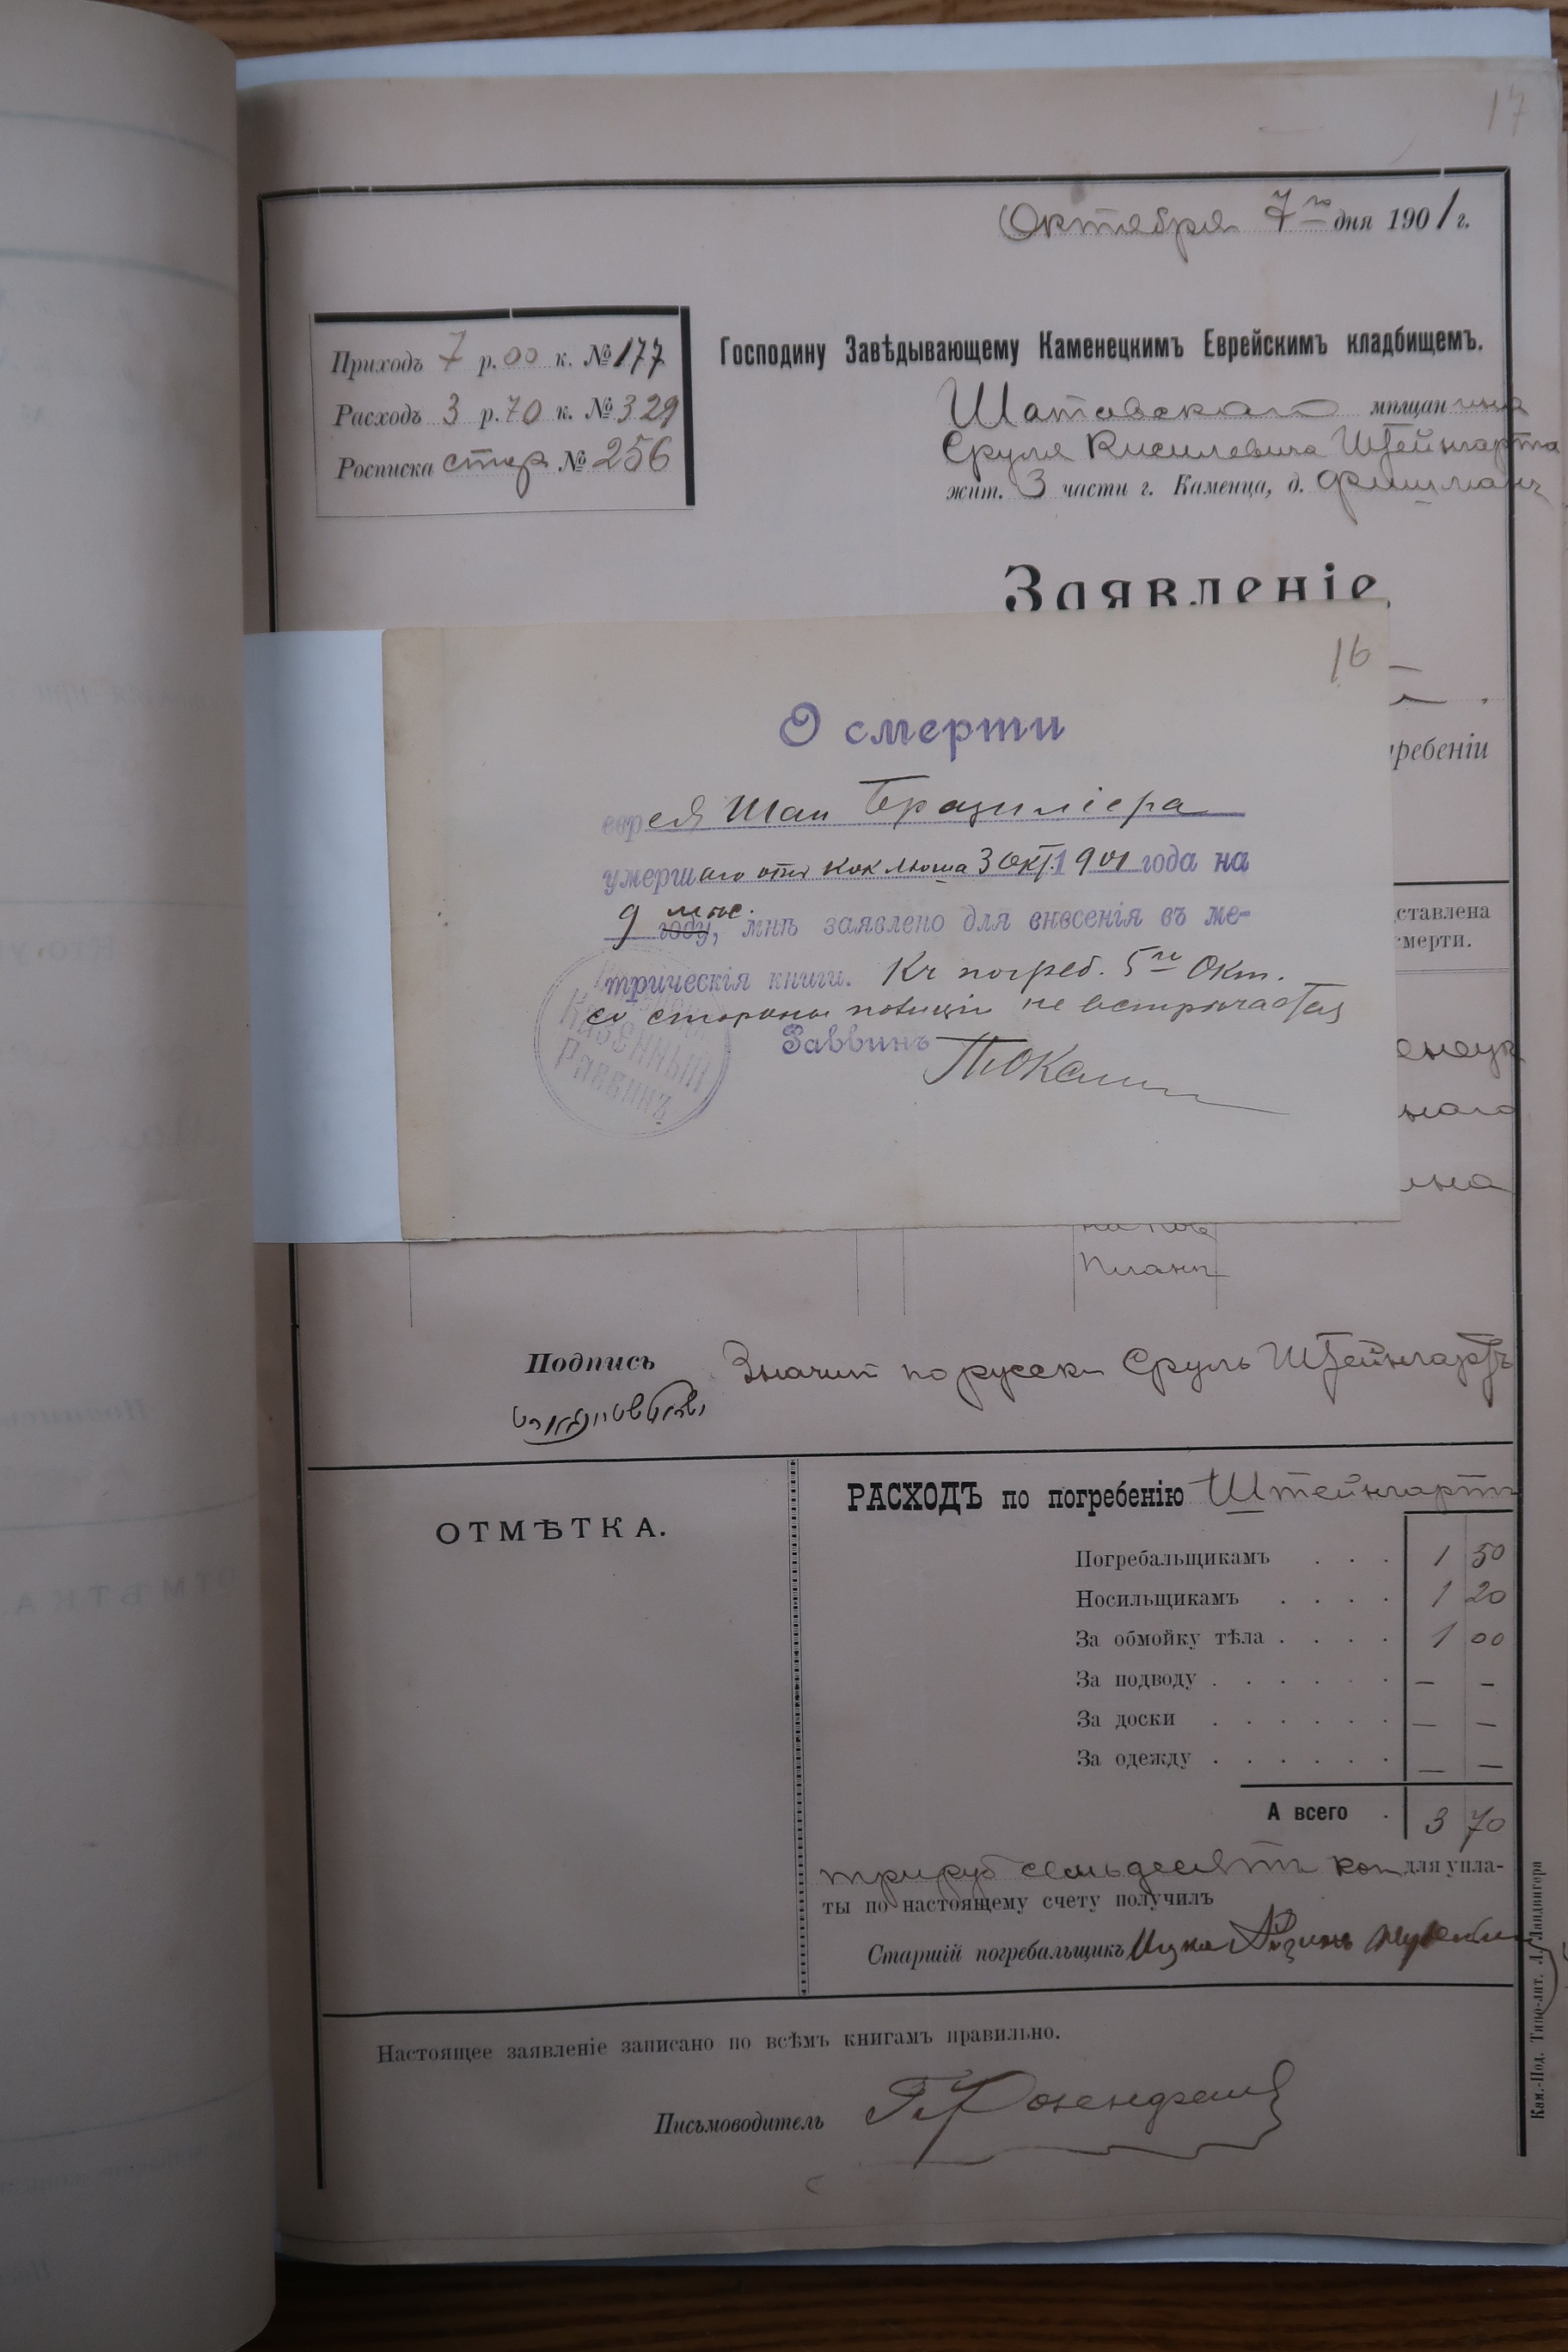 17
Октября 7го дня 1901 г.
Приходъ 7 р. 00 к. № 177
Расходъ 3 р. 70 к. № 329
Росписка стар № 256
Господину Завѣдывающему Каменецкимъ Еврейскимъ кладбищемъ.
Шатавскаго мѣщанина
Сруля Кисилевича Штейнгарта
жит. 3 части г. Каменца, д. Фишмань
Заявленіе
16
О смерти
еврея Шаи Бразиліера
умершаго отъ коклюша 3 Окт. 1901 года на
9 мѣс. году, мнѣ заявлено для внесенія въ ме-
трическія книги. Къ погреб. 5го Окт.
со стороны полиціи не встрѣчается
Раввинъ
Казенный
Раввинъ
ребеніи
ставлена
смерти.
наго
Подпись Значит по русски Сруль Штейнгартъ
ОТМѢТКА.
РАСХОДЪ по погребенію Штейнгартъ
Погребальщикамъ . . . 1 50
Носильщикамъ . . . . 1 20
За обмойку тѣла . . . . 1 00
За подводу . . . . . . — -
За доски . . . . . . — —
За одежду . . . . . . — —
А всего . 3 70
три руб семьдесятъ коп для упла-
ты по настоящему счету получилъ
Старшій погребальщикъ Ицко
Настоящее заявленіе записано по всѣмъ книгамъ правильно.
Письмоводитель
Кам.-Под. Типо-лит. Л. Ландвигера